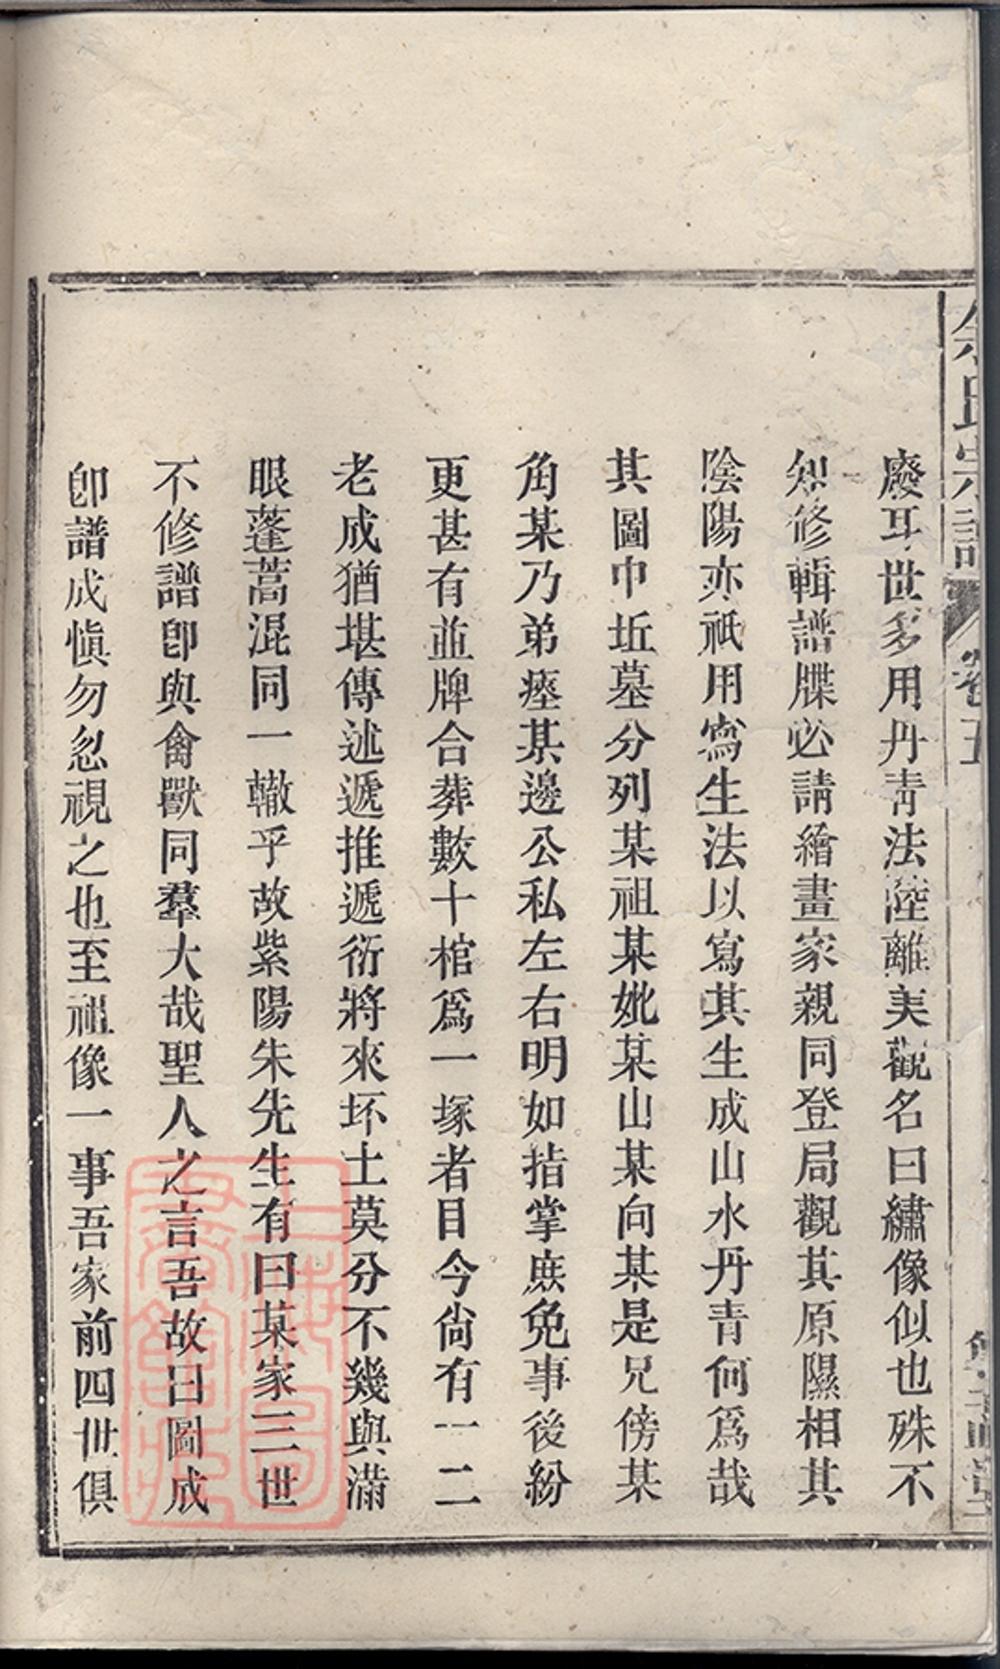 余氏宗譜
卷五
廢耳世多用丹靑法陸離美觀名曰繡像似也殊不
知修輯譜牒必請繪畫家親同登局觀其原隰相其
陰陽亦祇用寫生法以寫其生成山水丹青何爲哉
其圖巾坵墓分列某祖某妣某山某向某是兄傍某
角某乃弟瘞某邊公私左右明如指掌庶免事後紛
更甚有並牌合葬數十棺爲一塚者目今尙有一二
老成猶堪傳述遞推遞衍將來坏土莫分不幾與滿
眼蓬蒿混同一轍乎故紫陽朱先生有曰某家三世
不修譜卽與禽獸同羣大哉聖人之言吾故曰圖成
卽譜成愼勿忽視之也至祖像一事吾家前四世俱
上海圖書館藏